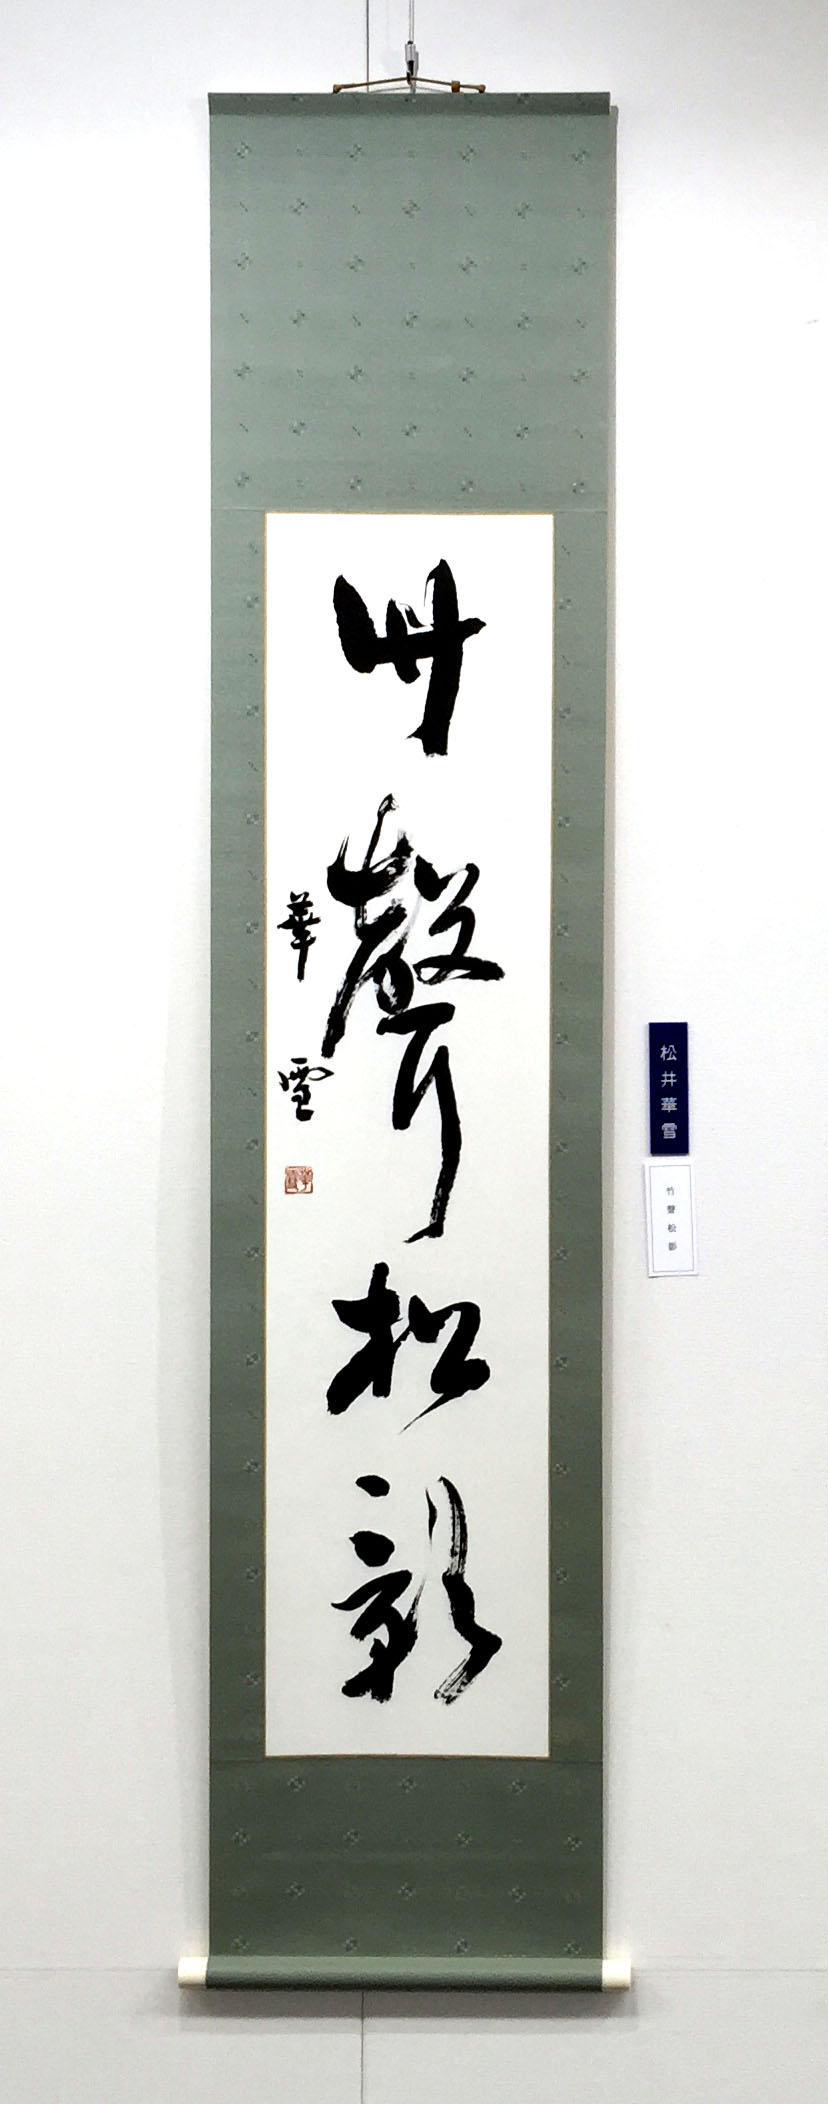 竹聲松影
華雪
松井華雪
竹聲松影